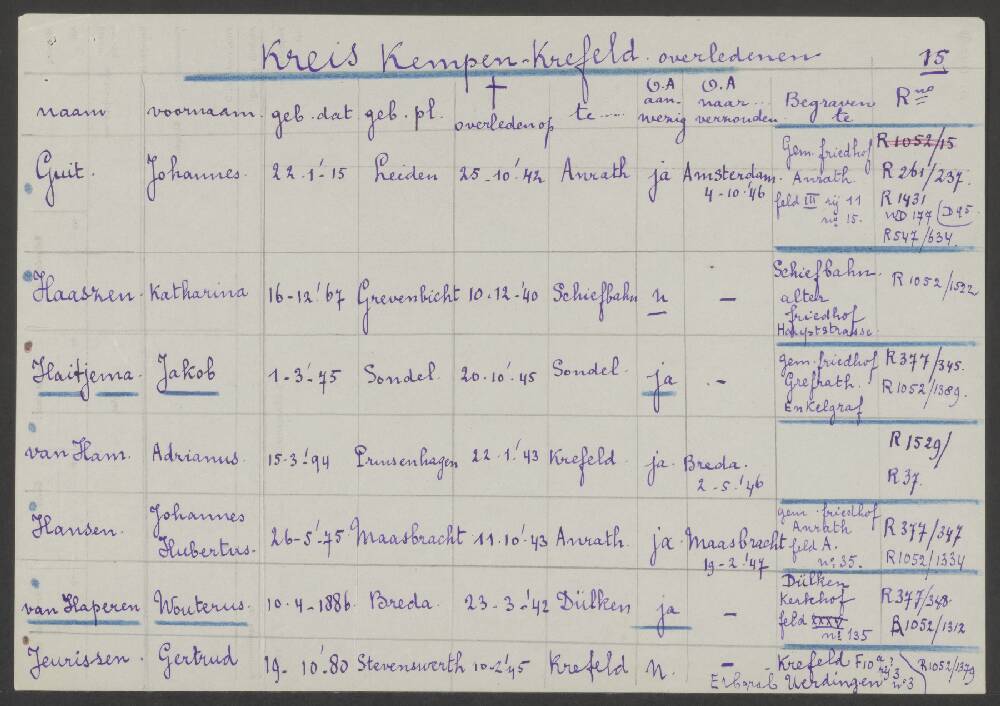 Kreis Kempen-Krefeld. overledenen 15
naam voornaam. geb. dat geb. pl. † overleden op te ..... O.A aanwezig O.A naar ... verzonden. Begraven te R no
Guit. Johannes. 22-1-'15 Leiden 25-10-'42 Anrath ja Amsterdam. 4-10-'46
Gem. friedhof Anrath.
feld III rij 11
no 15.
R 1052/15
R 261/237.
R 1431
WD 177 (D95
R547/634.
Haaszen. Katharina 16-12-'67 Grevenbicht 10-12-'40 Schiefbahn n –
Schiefbahn.
alter
friedhof
Hauptstrasse.
R 1052/1522
Haitjema. Jakob 1-3-'75 Sondel. 20-10-'45 Sondel. ja . –
gem. friedhof
Grefrath.
Enkelgraf
R377/345.
R1052/1389.
van Ham. Adrianus. 15-3-'94 Prinsenhagen 22-1-'43 Krefeld. ja. Breda. 2-5-'46
R 1529/
R 37.
Hansen. Johannes Hubertus. 26-5-'75 Maasbracht 11-10-'43 Anrath. ja. Maasbracht 19-2-'47
gem. friedhof
Anrath
feld A.
no 35.
R 377/347
R1052/1334
van Haperen Wouterus. 10-4-1886. Breda. 23-3-'42 Dülken ja –
Dülken
Kerkhof
feld XXXV
no 135
R377/348.
R1052/1312
Jeurissen. Gertrud 19-10-'80 Stevenswerth 10-2-'45 Krefeld n. –
- Krefeld F10a rij 3
Erbgrab Uerdingen no 3
R1052/1379